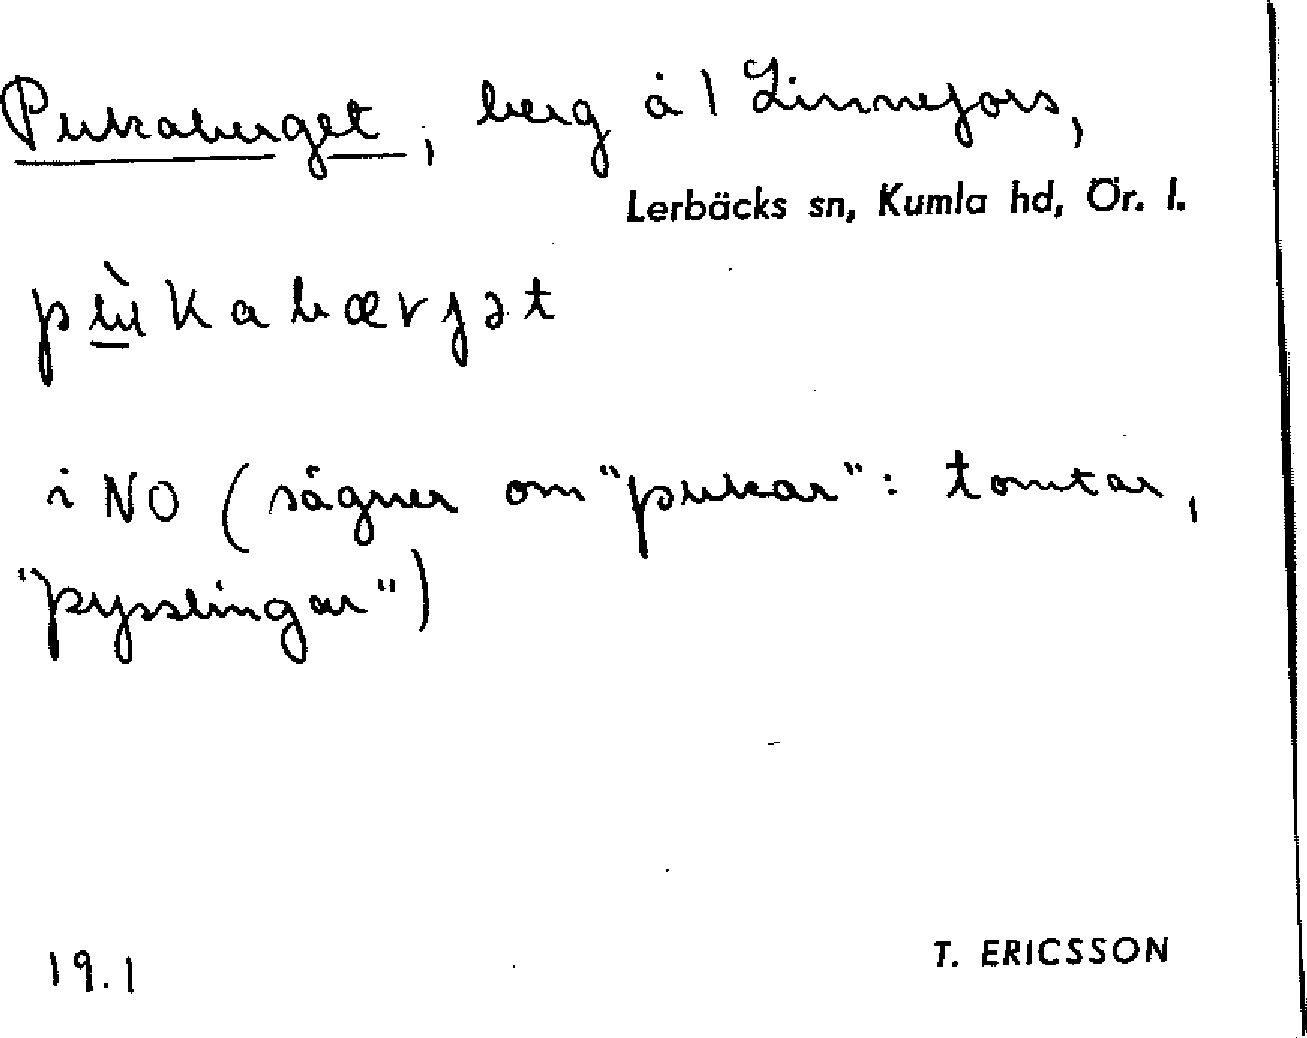 Pukaberget, berg å 1 Linnefors,
Lerbäcks sn, Kumla hd, Ör. l.
pùkabærjət
i NO (sägner om "pukar": tomtar,
"pysslingar")
19.1
T. ERICSSON